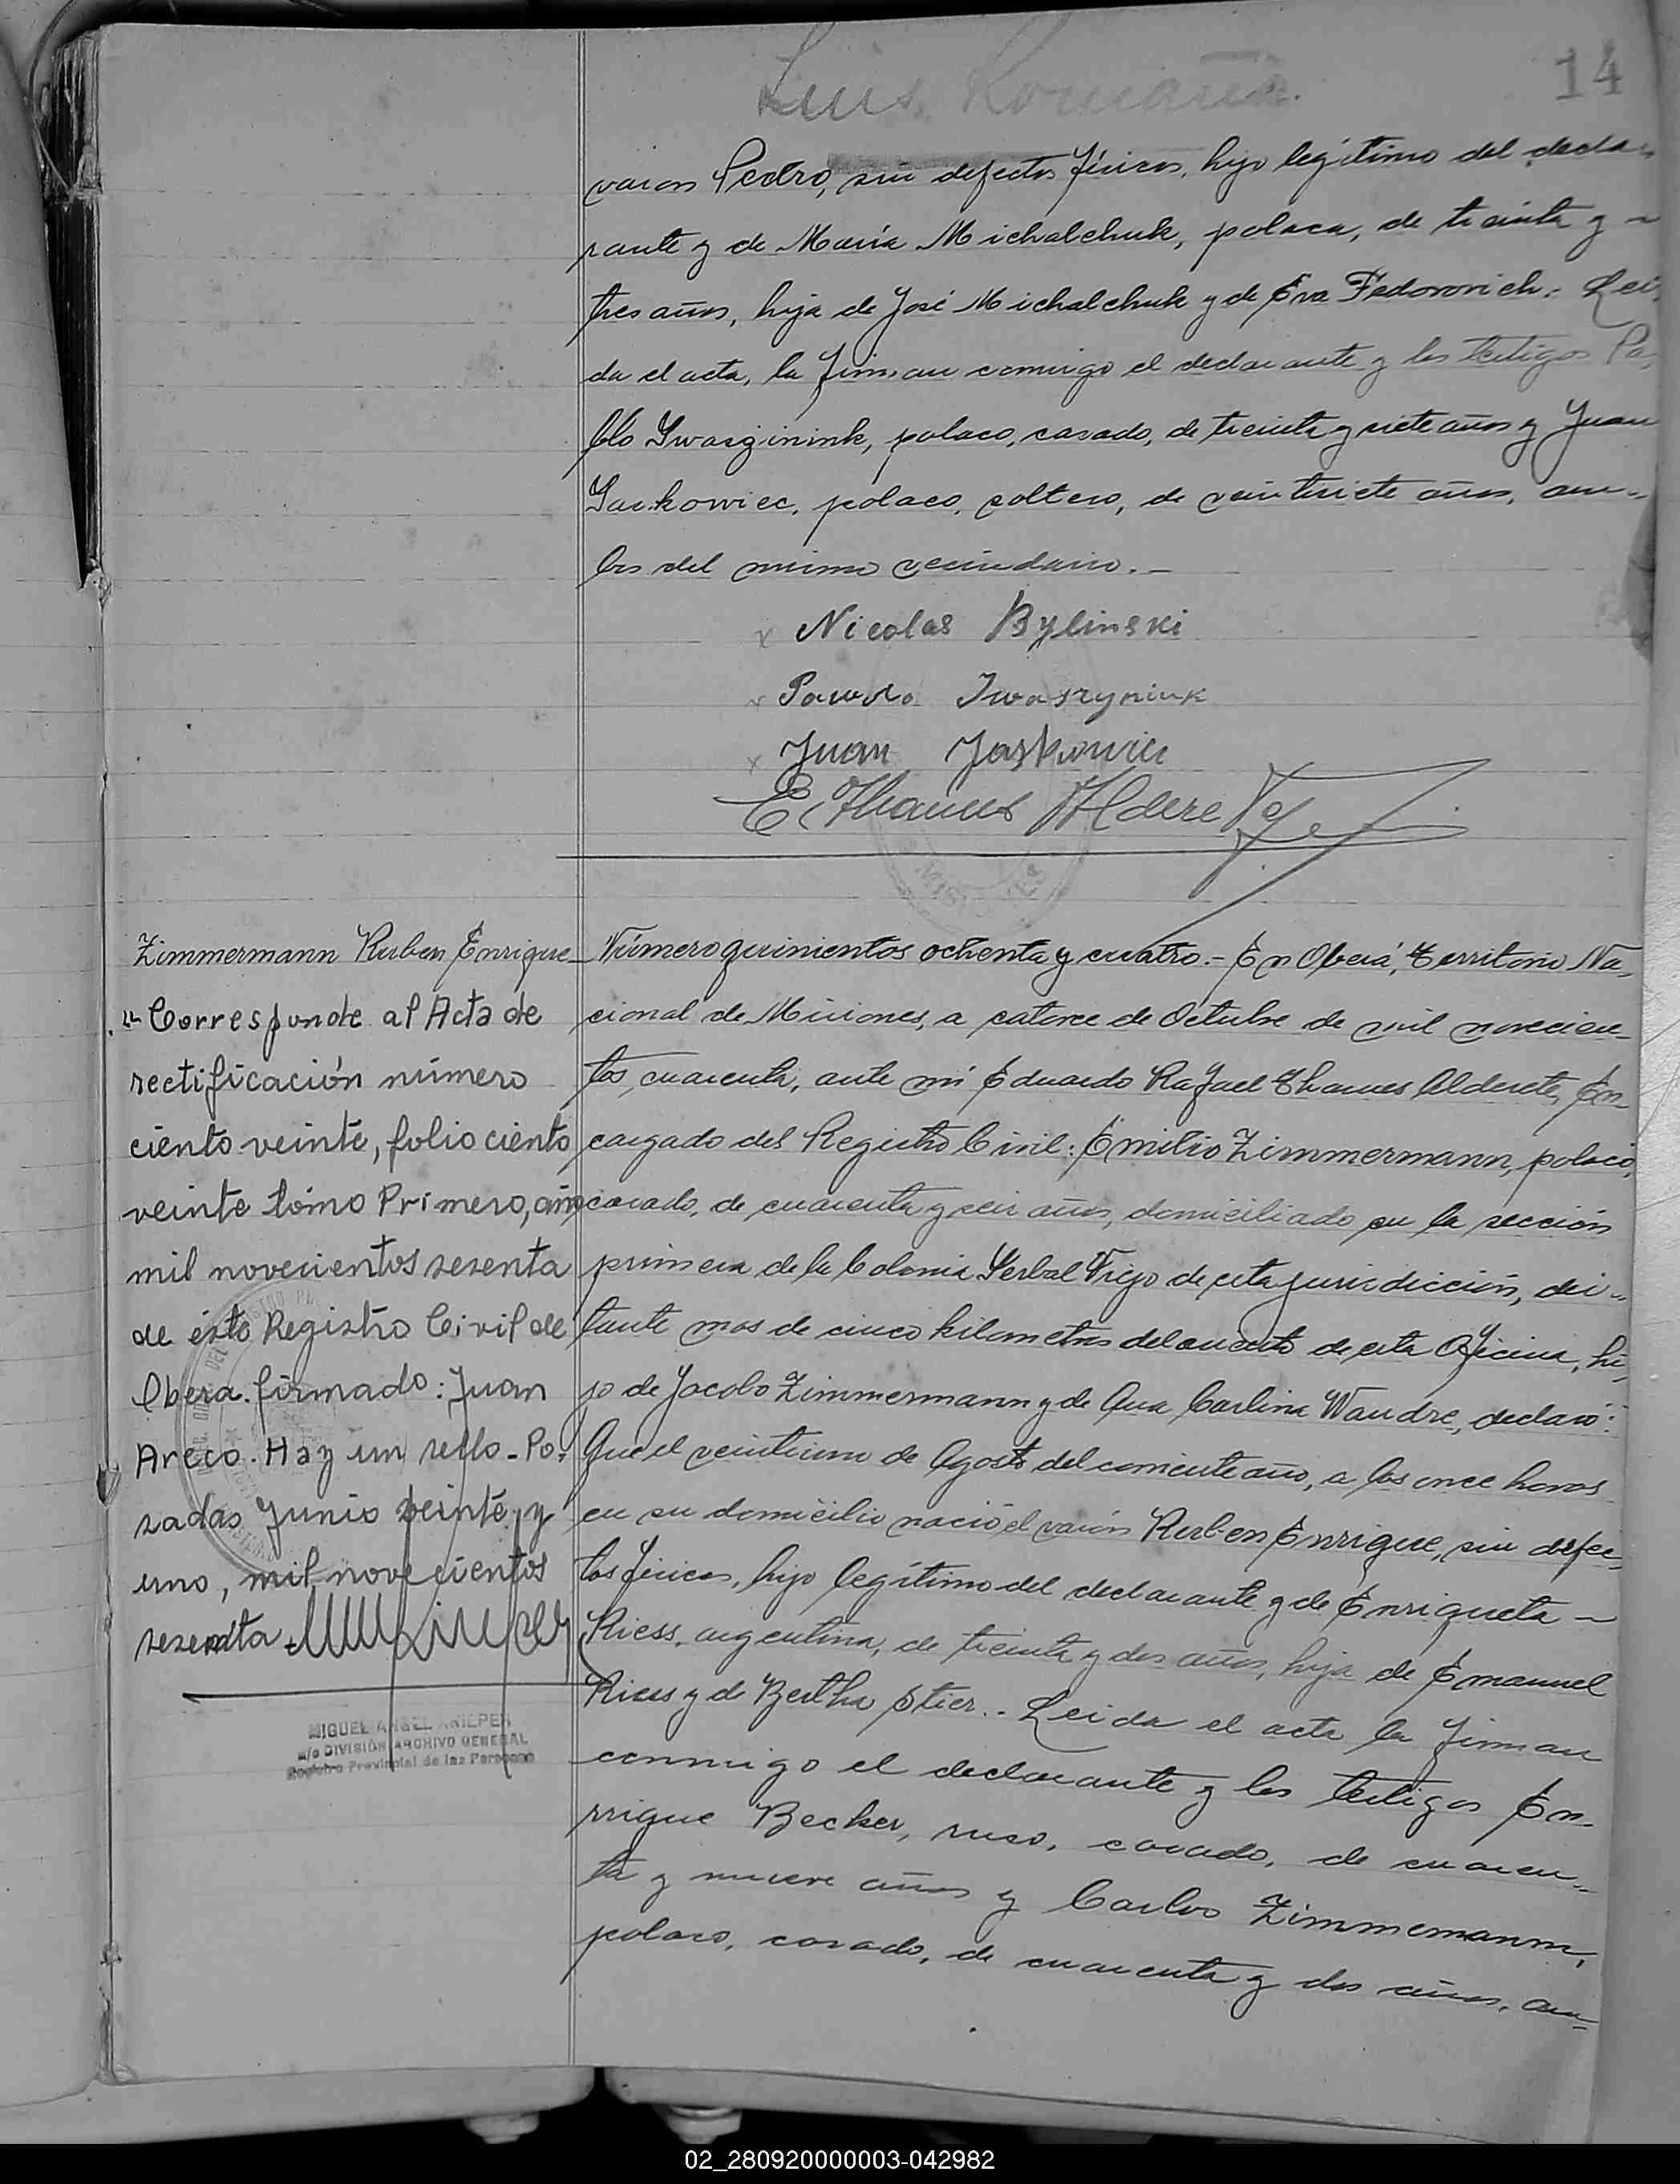 Luis Romaña.
14
varon Pedro, sin defectos físicos, hijo legítimo del decla-
rante y de María Michalchuk, polaca, de treinta y
tres años, hija de José Michalchuk y de Eva Fedorovich.- Lei-
da el acta, la firman conmigo el declarante y los testigos Pa-
blo Iwazginink, polaco, casado, de treinta y siete años y Juan
Jaskowiec, polaco, soltero, de veintisiete años, am-
bos del mismo vecindario.-
x Nicolas Bylinski
x Pawlo Iwaszyniuk
x Juan Jaskowiec
E. Thames Alderete
MISIONES
Zimmermann Ruben Enrique
"Corresponde al Acta de
rectificación número
ciento veinte, folio ciento
veinte tómo Primero, año
mil novecientos sesenta
de ésto Registro Civil de
Obera. firmado: Juan
Areco. Hay un sello - Po-
sadas Junio veinte y
uno, mil novecientos
sesenta.
MIGUEL ANGEL
a/c DIVISIÓN ARCHIVO GENERAL
Registro Provincial de las Personas
Número quinientos ochenta y cuatro.- En Oberá, Territorio Na-
cional de Misiones, a catorce de Octubre de mil novecien-
tos, cuarenta, ante mí Eduardo Rafael Thames Alderete, En-
cargado del Registro Civil: Emilio Zimmermann, polaco,
casado, de cuarenta y seis años, domiciliado en la sección
primera de la Colonia Yerbal Viejo de esta jurisdicción, dis-
tante mas de cinco kilometros del asiento de esta Oficina, hi-
jo de Jacobo Zimmermann y de Ana Carlina Wandre, declaró:
Que el veintiuno de Agosto del corriente año, a las once horas
en su domicilio nació el varón Ruben Enrique, sin defec-
tos físicos, hijo legítimo del declarante y de Enriqueta
Riess, argentina, de treinta y dos años, hija de Emanuel
Riess y de Bertha Stier.- Leida el acta la firman
conmigo el declarante y los testigos En-
rrique Becker, ruso, casado, de cuaren-
ta y nueve años y Carlos Zimmemann,
polaco, casado, de cuarenta y dos años, am-
02_280920000003-042982